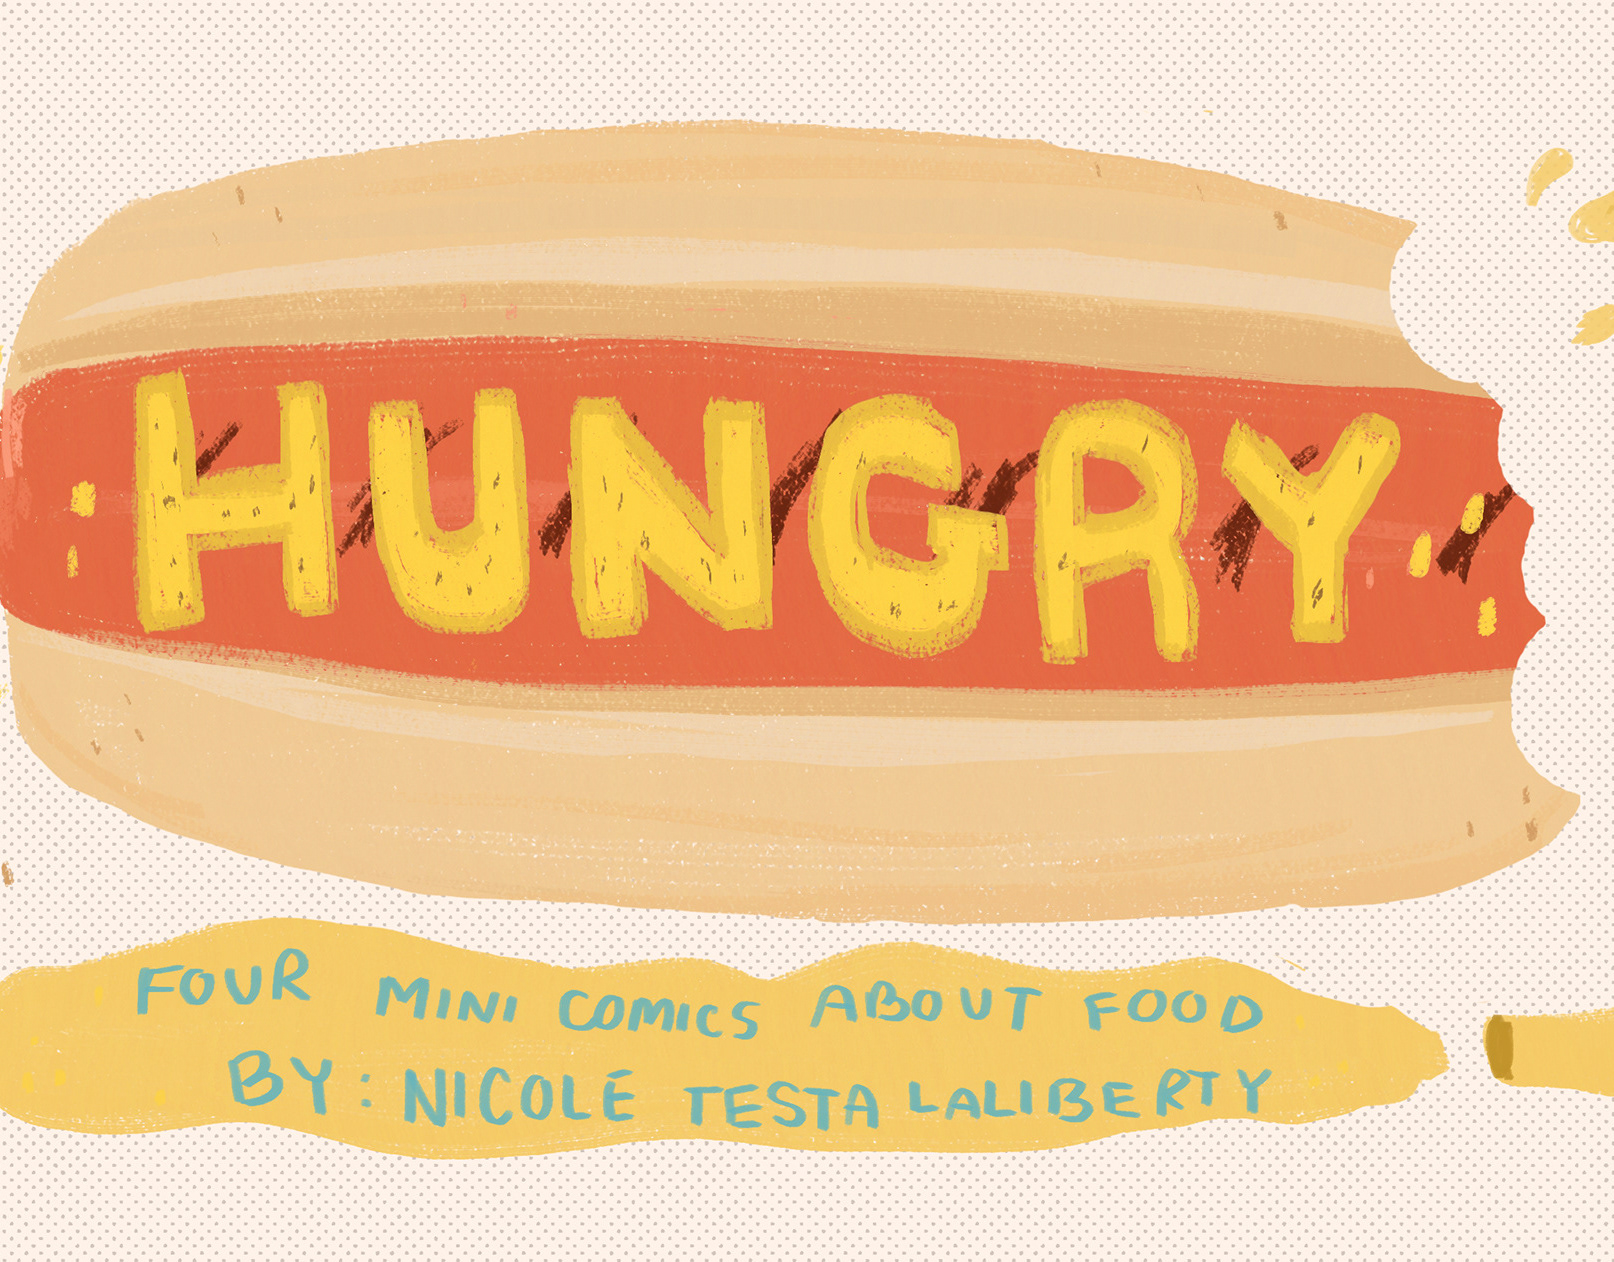 HUNGRY
FOUR MINI COMICS ABOUT FOOD
BY: NICOLE TESTA LALIBERTY